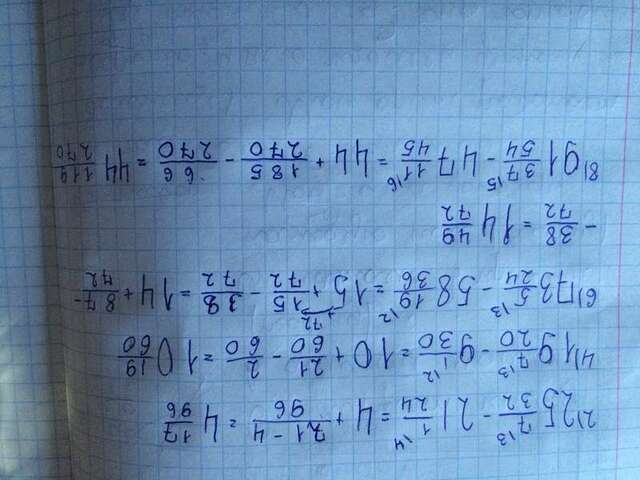 2) 25 7/32 \3 - 21 1/24 \4 = 4 + 21 - 4/96 = 4 17/96
4) 19 7/20 \3 - 9 1/30 \2 = 10 + 21/60 - 2/60 = 10 19/60
6) 73 5/24 \3 - 58 19/36 \2 = 15 + 15/72 - 38/72 = 14 + 87/72 -
- 38/72 = 14 49/72
8) 91 37/54 \5 - 47 11/45 \6 = 44 + 185/270 - 66/270 = 44 119/270